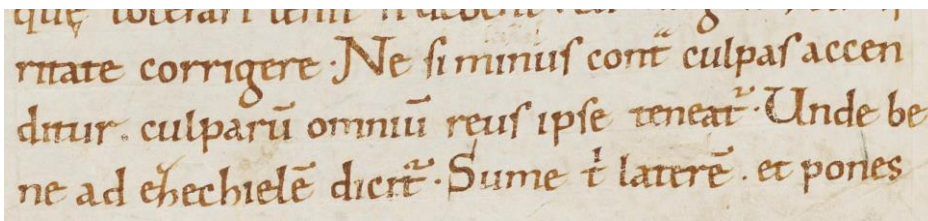 quę tolerari leniter n̄ debent
ritate corrigere. Ne si minus cont̄ culpas accen
ditur. culparū omniū reus ipse teneat᷑. Unde be
ne ad ezechielē dicit᷑. Sume t̄ laterē. et pones